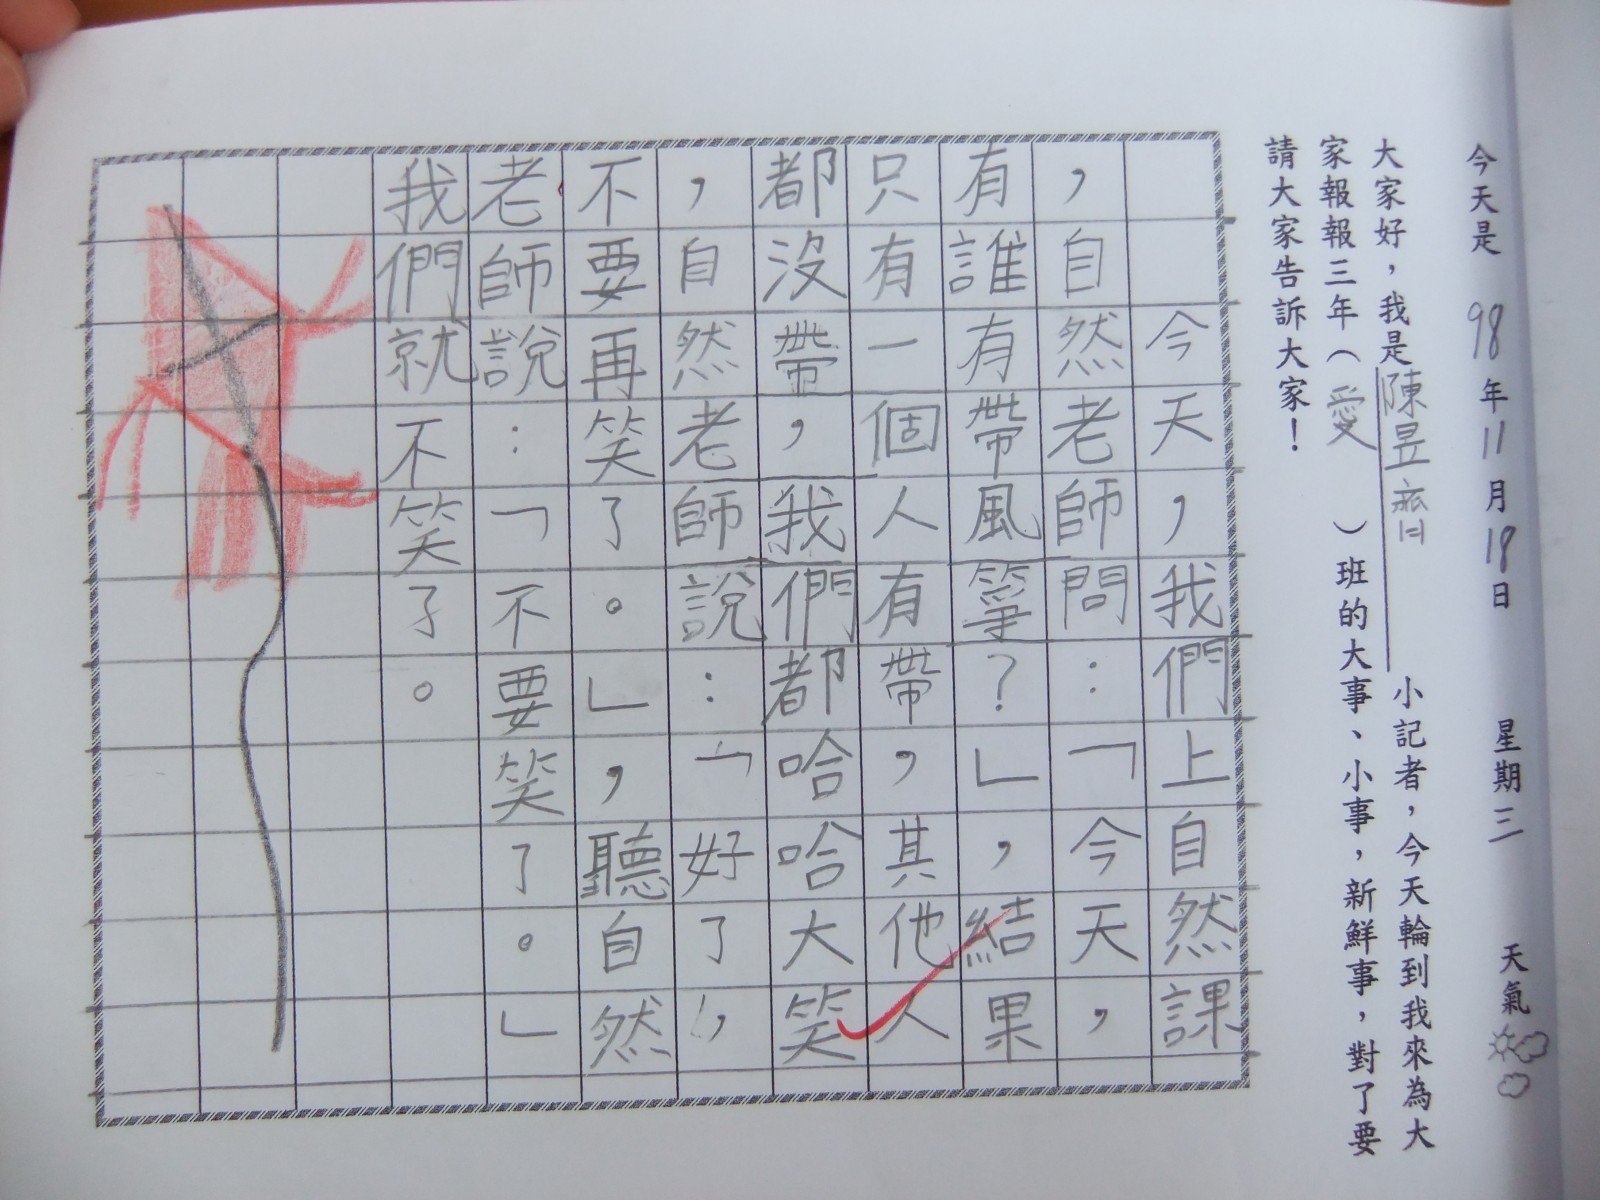 今天是 98 年 11 月 18 日 星期三 天氣
大家好，我是陳昱齊 小記者，今天輪到我來為大
家報報三年（愛 ）班的大事、小事，新鮮事，對了要
請大家告訴大家！
今天，我們上自然課
，自然老師問：「今天，
有誰有帶風箏？」，結果
只有一個人有帶，其他人
都沒帶，我們都哈哈大笑
，自然老師說：「好了，
不要再笑了。」，聽自然
老師說：「不要笑了。」
我們就不笑了。